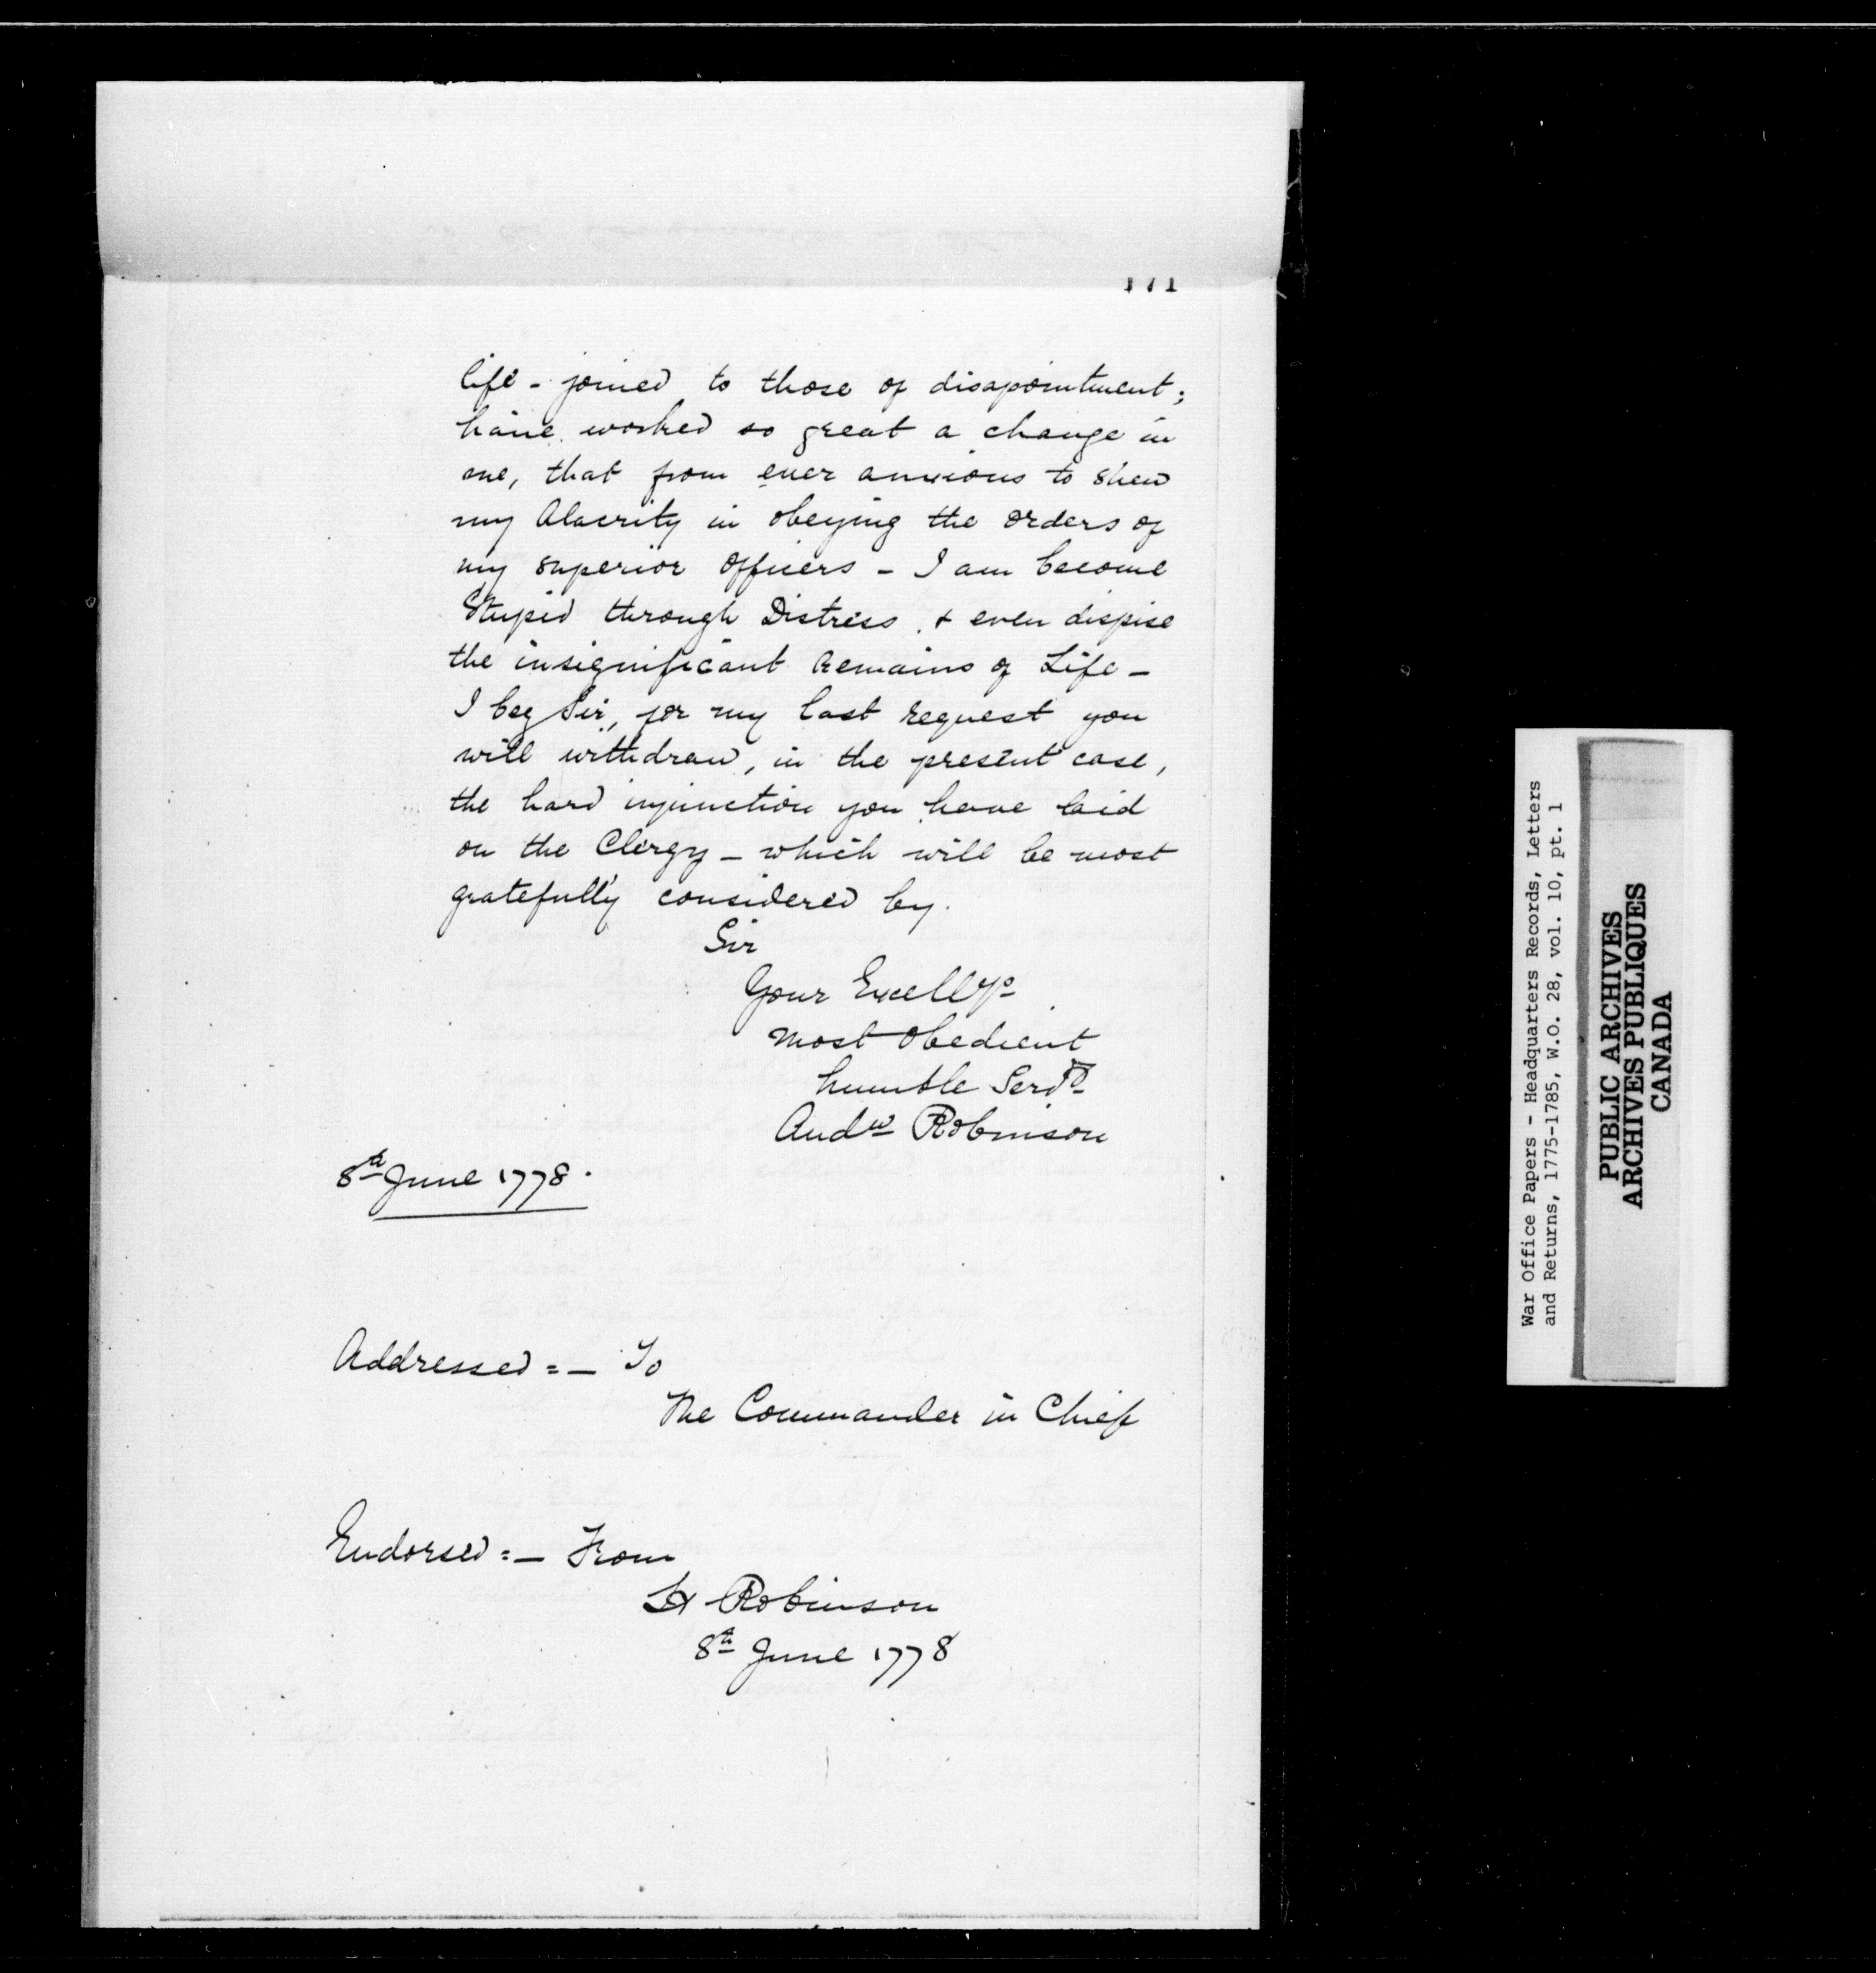 171
life - joined to those of disapointment;
have worked so great a change in
me, that from ever anxious to shew
my Alacrity in obeying the orders of
my superior Officers - I am become
Stupid through Distress, & even dispise
the insignificant Remains of Life -
I beg Sir, for my last request you
will withdraw, in the present case,
the hard injunction you have laid
on the Clergy - which will be most
gratefully considered by.
Sir
Your Excellys
most obedient
humble Servt
Andw Robinson
8th June 1778.
Addressed = - To
The Commander in Chief
Endorsed = - From
Lt Robinson
8th June 1778
War Office Papers - Headquarters Records, Letters
and Returns, 1775-1785, W.O. 28, vol. 10, pt. 1
PUBLIC ARCHIVES
ARCHIVES PUBLIQUES
CANADA